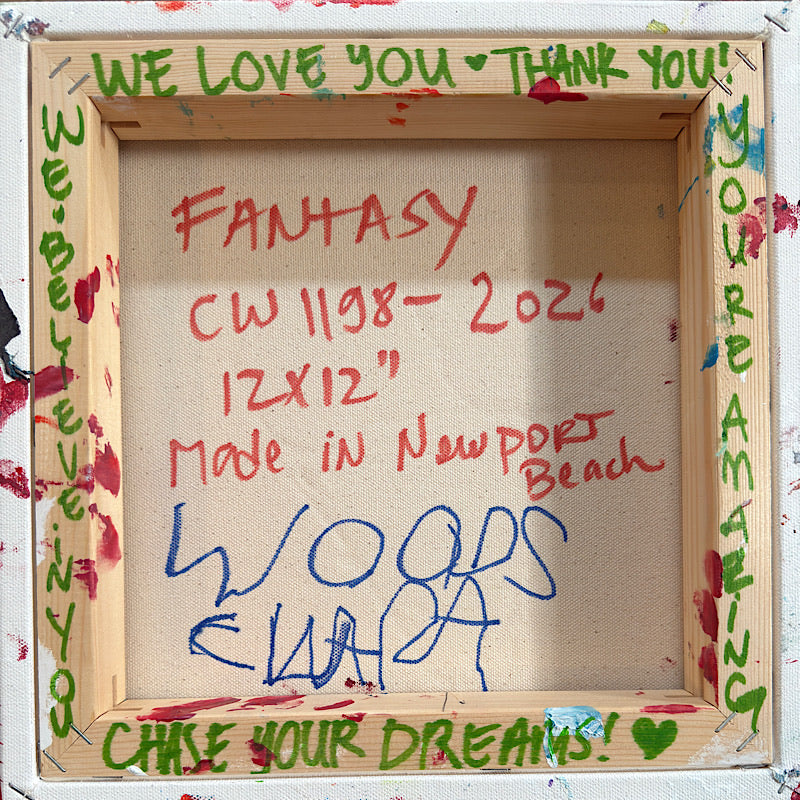 WE LOVE YOU ♥ THANK YOU!
WE·BELIEVE·IN YO
YOU'RE AMAZING
FANTASY
CW 1198-2026
12x12"
Made in Newport
Beach
WOODS
CHASE YOUR DREAMS! ♥